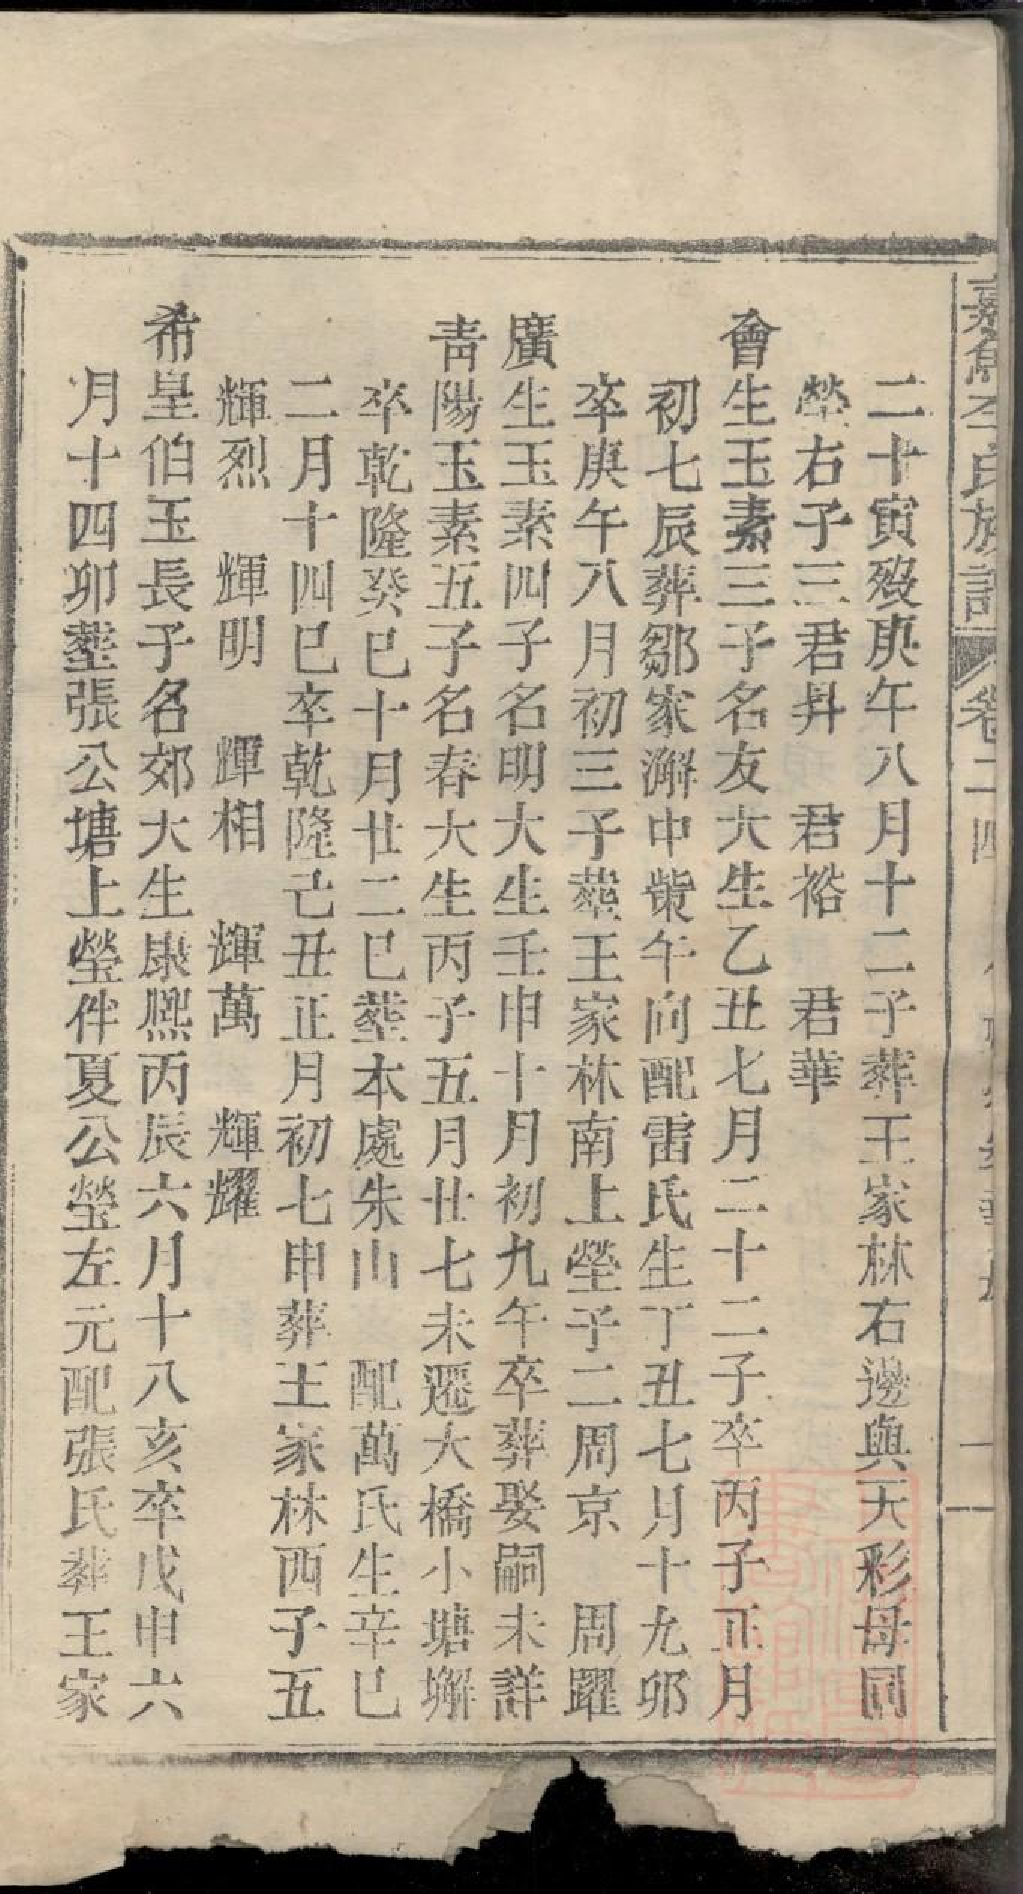 嘉魚李氏族譜 卷二四
二十寅歿庚午八月十二子葬王家林右邊與天彩母同
塋右子三君昇 君裕 君華
會生玉素三子名友大生乙丑七月二十二子卒丙子正月
初七辰葬鄒家澥中柴午向配雷氏生丁丑七月十九卯
卒庚午八月初三子葬王家林南上塋子二周京 周躍
廣生玉素四子名明大生壬申十月初九午卒葬娶嗣未詳
青陽玉素五子名春大生丙子五月廿七未遷大橋小塘墹
卒乾隆癸巳十月廿二巳塟本處朱山 配萬氏生辛巳
二月十四巳卒乾隆己丑正月初七申葬王家林西子五
輝烈 輝明 輝相 輝萬 輝耀
希皇伯玉長子名郊大生康熙丙辰六月十八亥卒戊申六
月十四卯塟張公塘上塋伴夏公塋左元配張氏葬王家